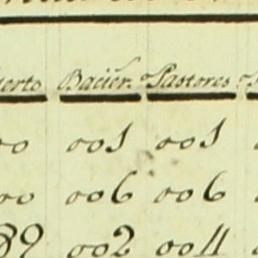 erto Bacier. Pastores
00 001 001
00 006 006
89 002 0011